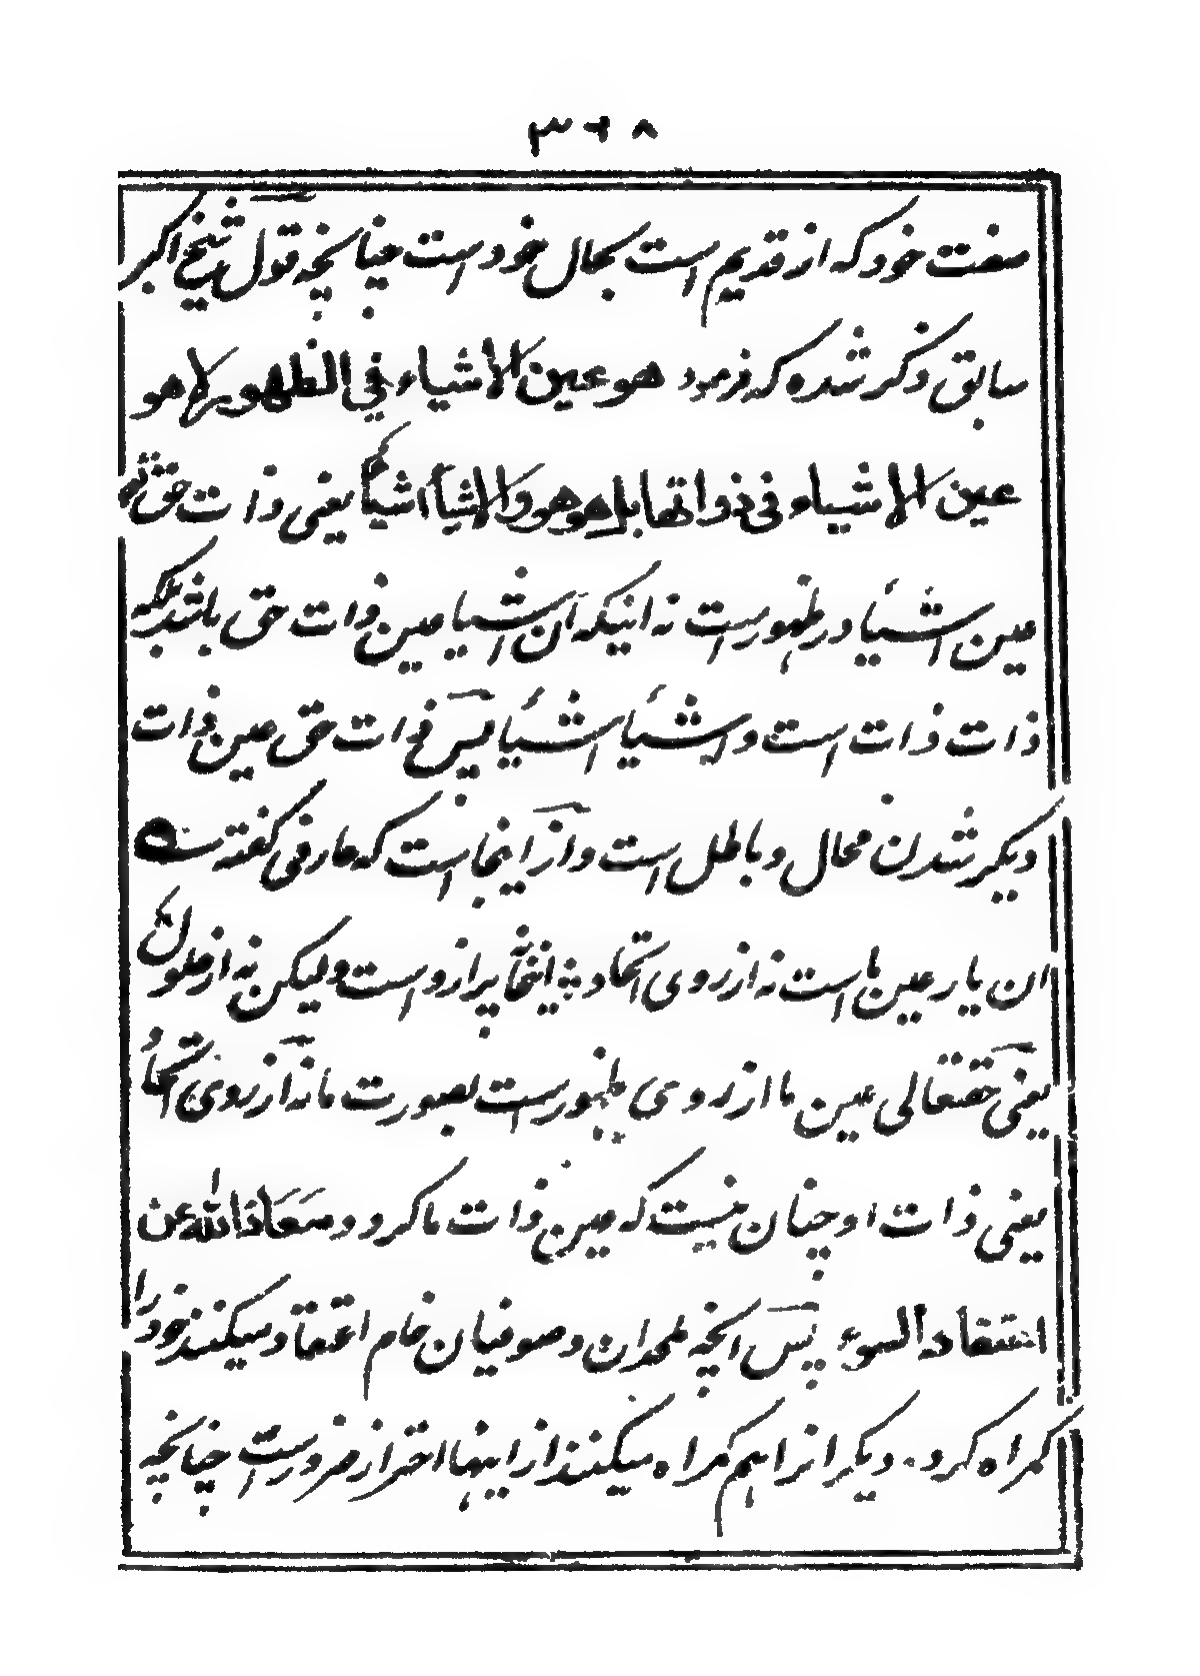 ۳۶۸
صفت خود که از قدیم است بحال خود است چنانچه قول شیخ اکبر
سابق ذکر شده که فرمود هو عین الاشیاء فی الظهور لا هو
عین الاشیاء فی ذواتها بل هو هو والاشیاء اشیاء یعنی ذات حق تعالی
عین اشیا در ظهور است نه اینکه آن اشیا عین ذات حق باشد بلکه
ذات ذات است و اشیا اشیا پس ذات حق عین ذات
دیگر شدن محال و باطل است و از اینجا است که عارفی گفته
ان یار عین ما است نه از روی اتحاد اینخانه پر از وست ولیکن نه از حلول
یعنی حقتعالی عین ما از روی ظهور است بصورت ما نه از روی اتحاد
یعنی ذات او چنان نیست که عین ذات ما کرود معاذالله عن
اعتقاد السوء پس انچه ملحدان و صوفیان خام اعتقاد میکنند خود را
گمراه کرد دیگر انرا هم گمراه میکنند از اینها احتراز ضرور است چنانچه